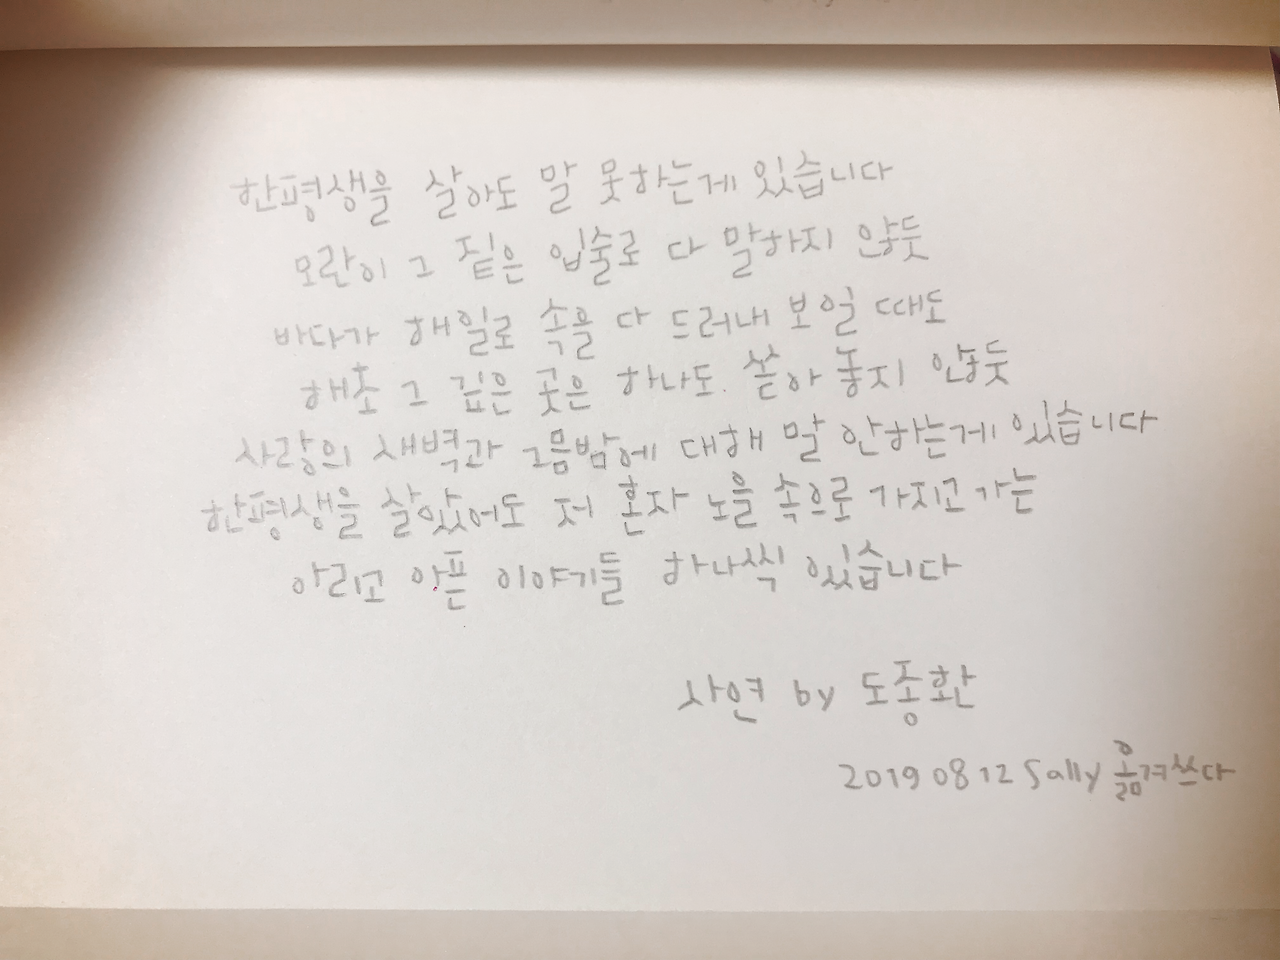 한평생을 살아도 말 못하는게 있습니다
모란이 그 짙은 입술로 다 말하지 않듯
바다가 해일로 속을 다 드러내 보일 때도
해초 그 깊은 곳은 하나도 쏟아 놓지 않듯
사랑의 새벽과 그믐밤에 대해 말 안하는게 있습니다
한평생을 살았어도 저 혼자 노을 속으로 가지고 가는
아리고 아픈 이야기들 하나씩 있습니다
사연 by 도종환
2019 08 12 Sally 옮겨쓰다